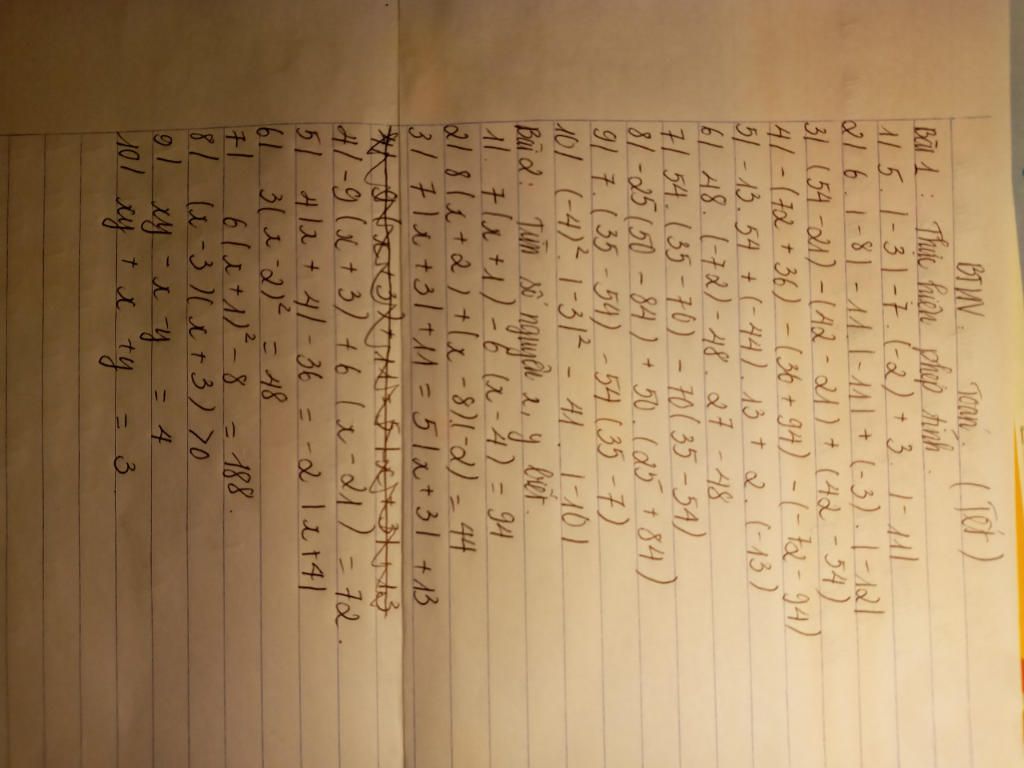 BTVN. Toán. (Tốt)
Bài 1: Thực hiện phép tính.
1/ 5. |-3| -7. (-2) + 3. |-11|
2/ 6. |-8| - 11. |-11| + (-3). |-12|
3/ (54 - 21) - (42 - 21) + (42 - 54)
4/ - (72 + 36) - (36 + 94) - (-72 - 94)
5/ -13. 54 + (-44). 13 + 2. (-13)
6/ 48. (-72) - 48. 27 - 48
7/ 54. (35 - 70) - 70(35 - 54)
8/ -25(50 - 84) + 50. (25 + 84)
9/ 7. (35 - 54) - 54 (35 - 7)
10/ (-4)². |-3|² - 41. |-10|
Bài 2: Tìm số nguyên x, y biết.
1/. 7(x + 1) - 6 (x - 4) = 94
2/ 8 (x + 2) + (x - 8)(-2) = 44
3/ 7 |x + 3| + 11 = 5 |x + 3| + 13
4/ -9 (x + 3) + 6 (x - 21) = 72.
5/ 4|x + 4| - 36 = -2 |x+4|
6/ 3(x - 2)² = 48
7/ 6 (x + 1)² - 8 = 188.
8/ (x - 3)(x + 3) > 0
9/ xy - x - y = 4
10/ xy + x + y = 3